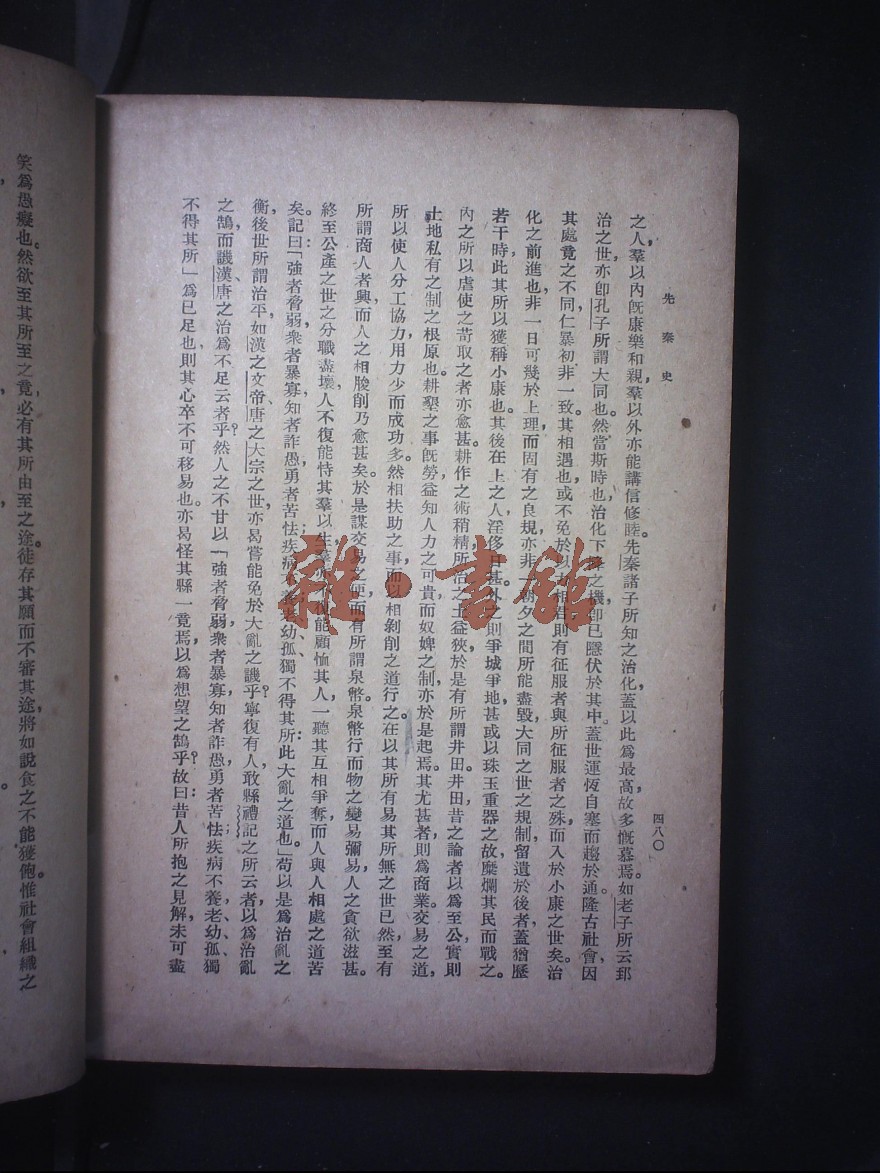 先秦史
四八〇
之人，羣以內旣康樂和親，羣以外亦能講信修睦。先秦諸子所知之治化，蓋以此爲最高，故多慨慕焉。如老子所云郅
治之世，亦卽孔子所謂大同也。然當斯時也，治化下降之機，卽已隱伏於其中。蓋世運恆自塞而趨於通。隆古社會，因
其處竟之不同，仁暴初非一致。其相遇也，或不免於以 相 則有征服者與所征服者之殊，而入於小康之世矣。治
化之前進也，非一日可幾於上理，而固有之良規，亦非一朝夕之間所能盡毀，大同之世之規制，留遺於後者，蓋猶歷
若干時，此其所以獲稱小康也。其後在上之人，淫侈日甚。外之則爭城爭地，甚或以珠玉重器之故，糜爛其民而戰之。
內之所以虐使之苛取之者亦愈甚。耕作之術稍精，所治之土益狹，於是有所謂井田。井田昔之論者以爲至公，實則
土地私有之制之根原也。耕墾之事旣勞，益知人力之可貴，而奴婢之制，亦於是起焉。其尤甚者，則爲商業。交易之道，
所以使人分工協力，用力少而成功多。然相扶助之事，而以相剝削之道行之。在以其所有，易其所無之世已然，至有
所謂商人者興，而人之相朘削乃愈甚矣。於是謀交易之便，而有所謂泉幣，泉幣行而物之變易彌易，人之貪欲滋甚。
終至公產之世之分職盡壞，人不復能恃其羣以生，羣亦 復能顧恤其人，一聽其互相爭奪，而人與人相處之道苦
矣。記曰：「強者脅弱，衆者暴寡，知者詐愚，勇者苦怯，疾病不養，老、幼、孤、獨，不得其所，此大亂之道也。」苟以是爲治亂之
衡，後世所謂治平，如漢之文帝、唐之大宗之世，亦曷嘗能免於大亂之譏乎？寧復有人，敢縣禮記之所云者，以爲治亂
之鵠，而譏漢、唐之治爲不足云者乎？然人之不甘以「強者脅弱，衆者暴寡，知者詐愚，勇者苦怯；疾病不養，老、幼、孤、獨
不得其所」爲已足也，則其心卒不可移易也。亦曷怪其縣一竟焉，以爲想望之鵠乎？故曰：昔人所抱之見解，未可盡
笑爲愚癡也。然欲至其所至之竟，必有其所由至之途。徒存其願而不審其途，將如說食之不能獲飽。惟社會組織之
雜·書館